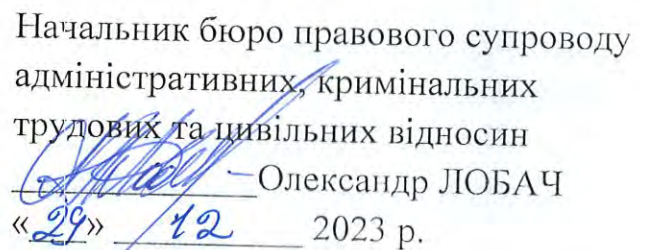 Начальник бюро правового супроводу
адміністративних, кримінальних
трудових та цивільних відносин
Олександр ЛОБАЧ
«29» 12 2023 р.